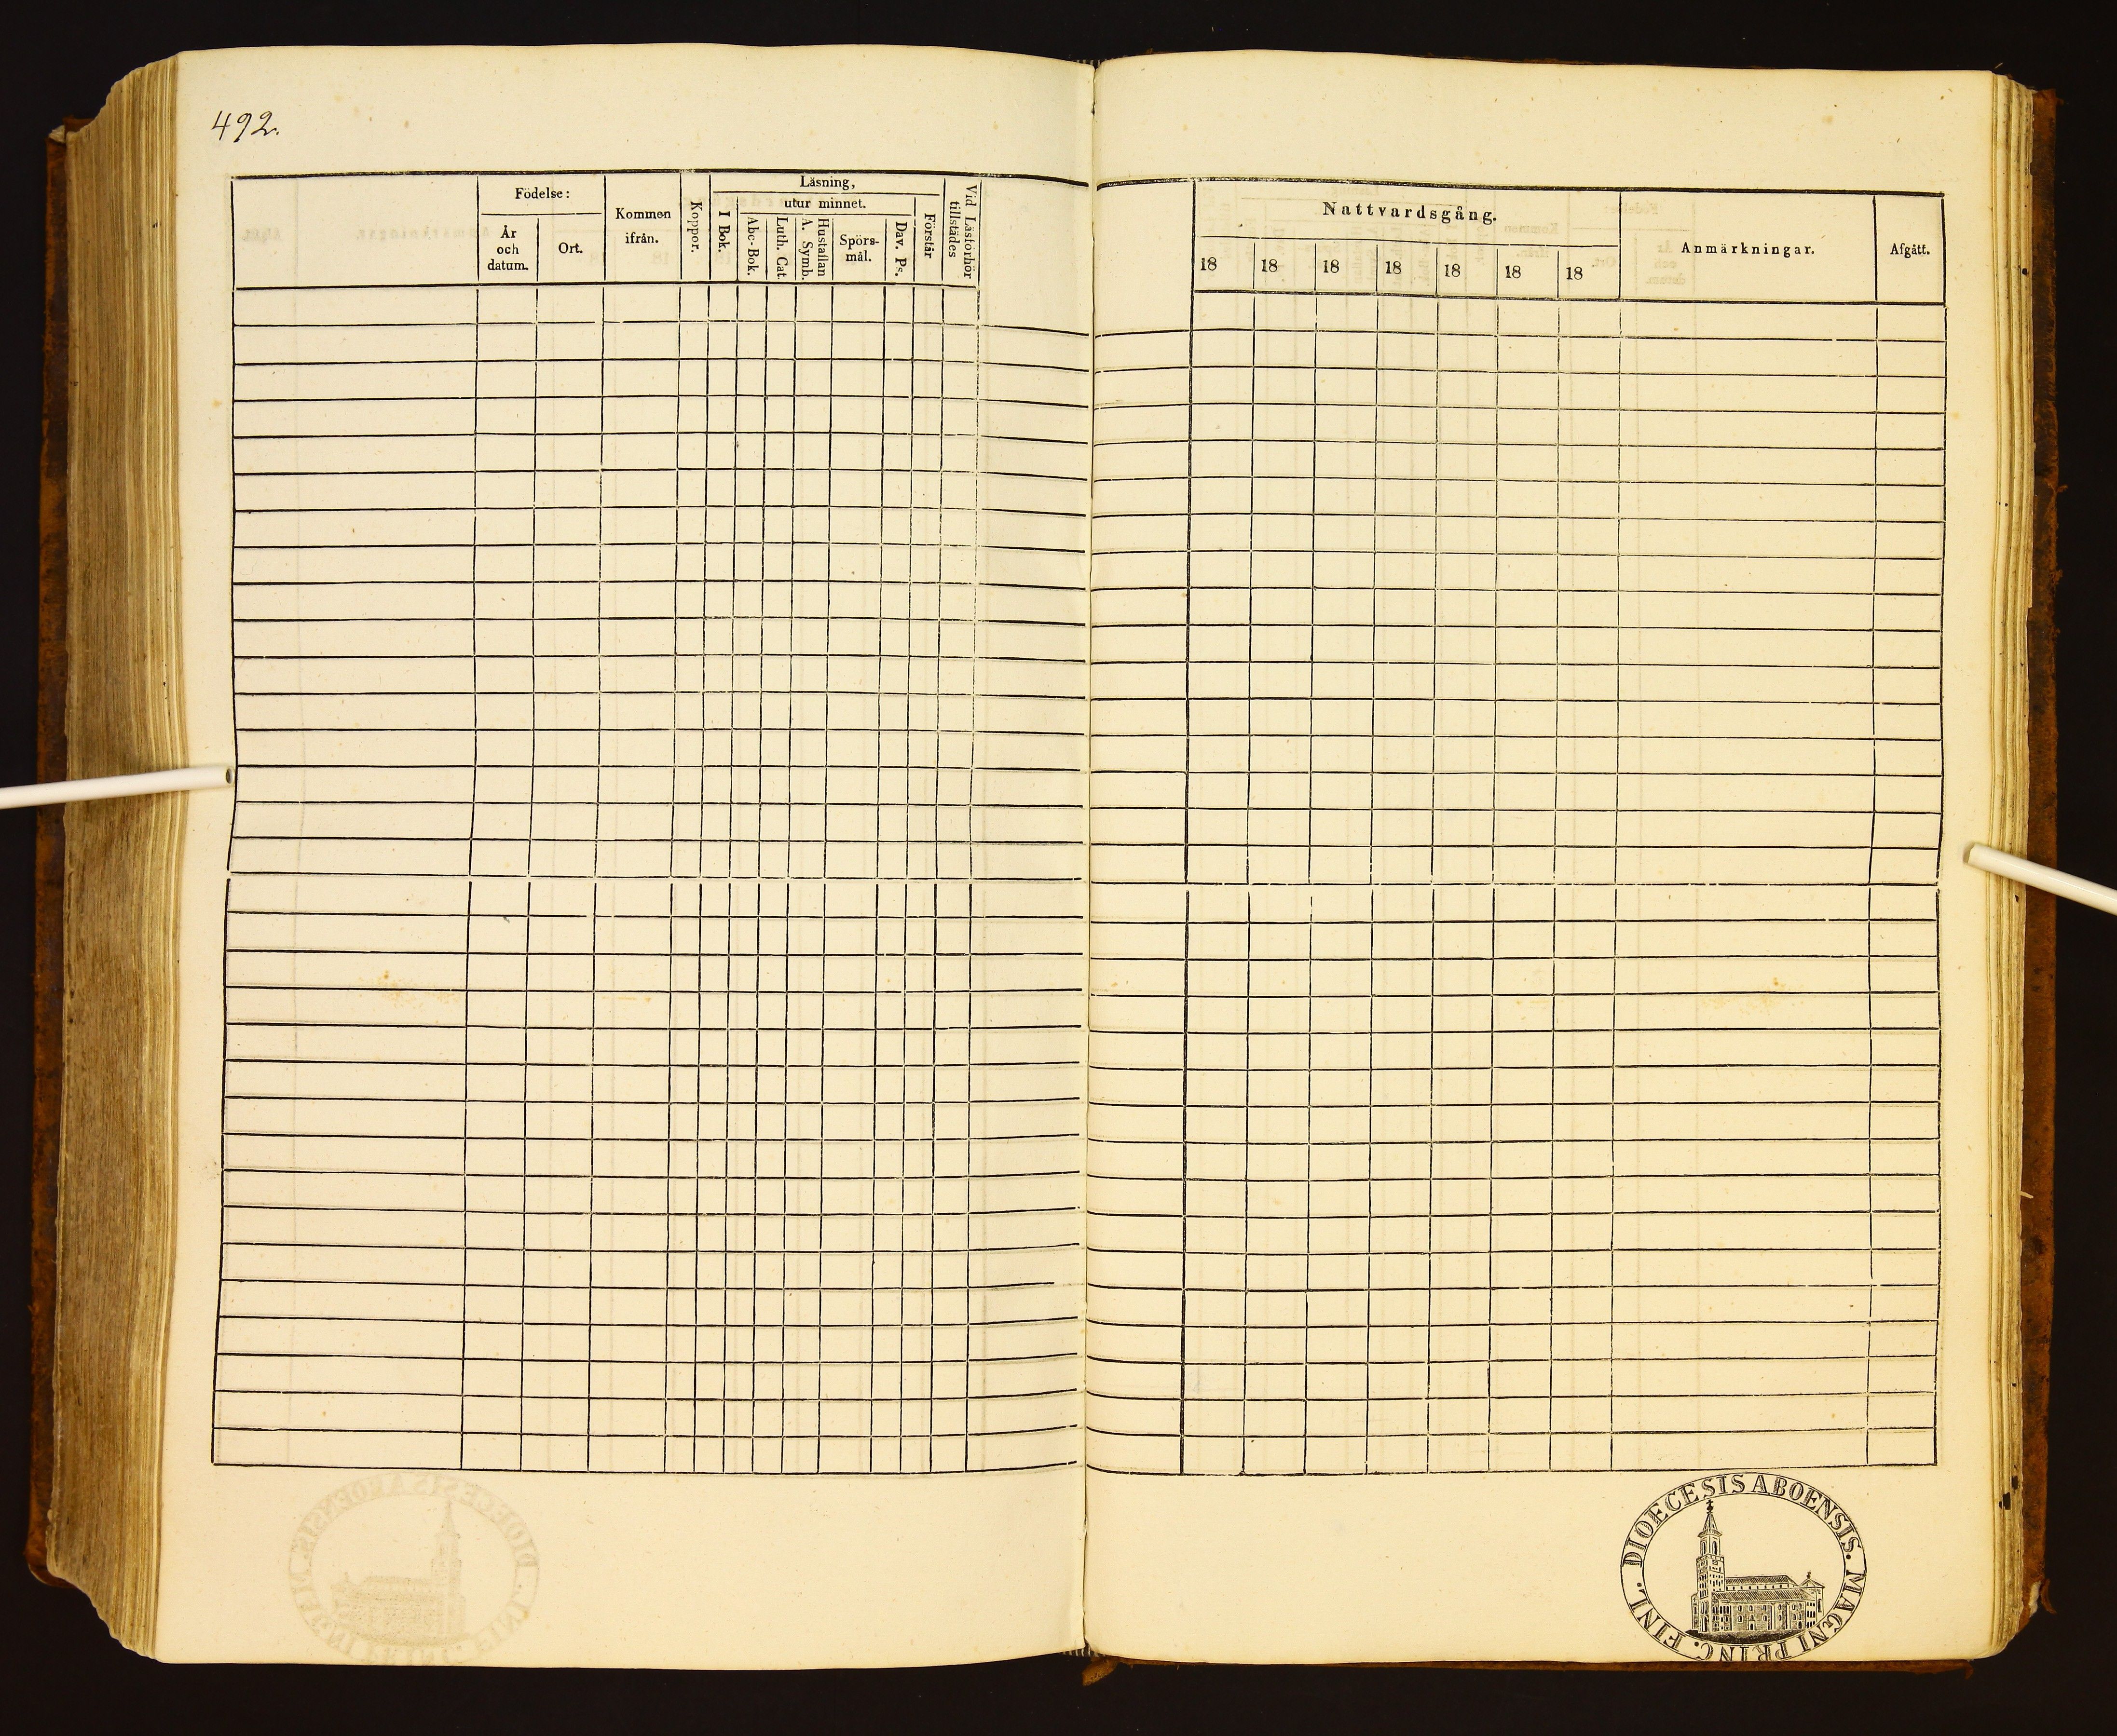 492.
Födelse:
År
och
datum.
Ort.
Kommen
ifrån.
Koppor.
Läsning,
I Bok.
utur minnet.
Abc-Bok.
Luth. Cat.
Hustaflan
A. Symb.
Spörs-
mål.
Dav. Ps.
Förstår
Vid Läsförhör
tillstädes
Nattvardsgång.
18 18 18 18 18 18 18
Anmärkningar.
Afgått.
DIOECESIS ABOENSIS. MAGNI PRINC. FINL.